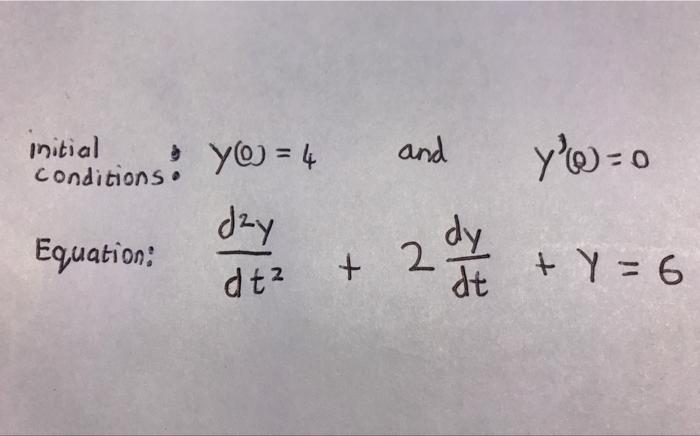 initial conditions: y(0) = 4 and y'(0) = 0
Equation: d²y/dt² + 2 dy/dt + y = 6